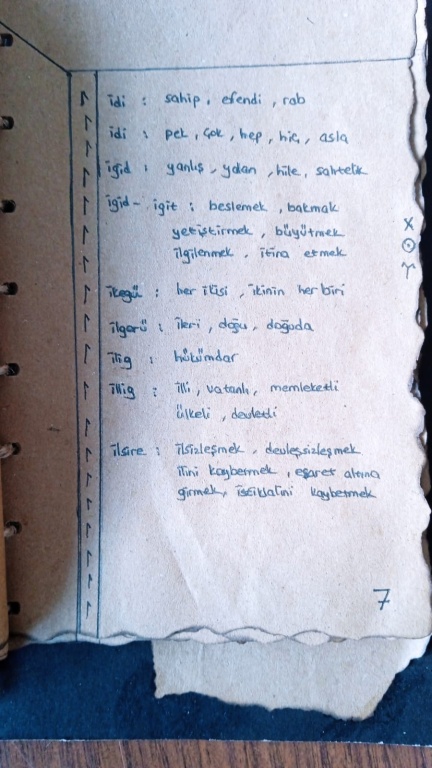 idi : sahip, efendi, rab
idi : pek, çok, hep, hiç, asla
igid : yanlış, yalan, hile, sahtelik
igid- igit : beslemek, bakmak
yetiştirmek, büyütmek
ilgilenmek, itina etmek
ikegü : her ikisi, ikinin her biri
ilgerü : ileri, doğu, doğuda
ilig : hükümdar
illig : illi, vatanlı, memleketli
ülkeli, devletli
ilsire : ilsizleşmek, devleşsizleşmek
ilini kaybetmek, esaret altına
girmek, istiklalini kaybetmek
7